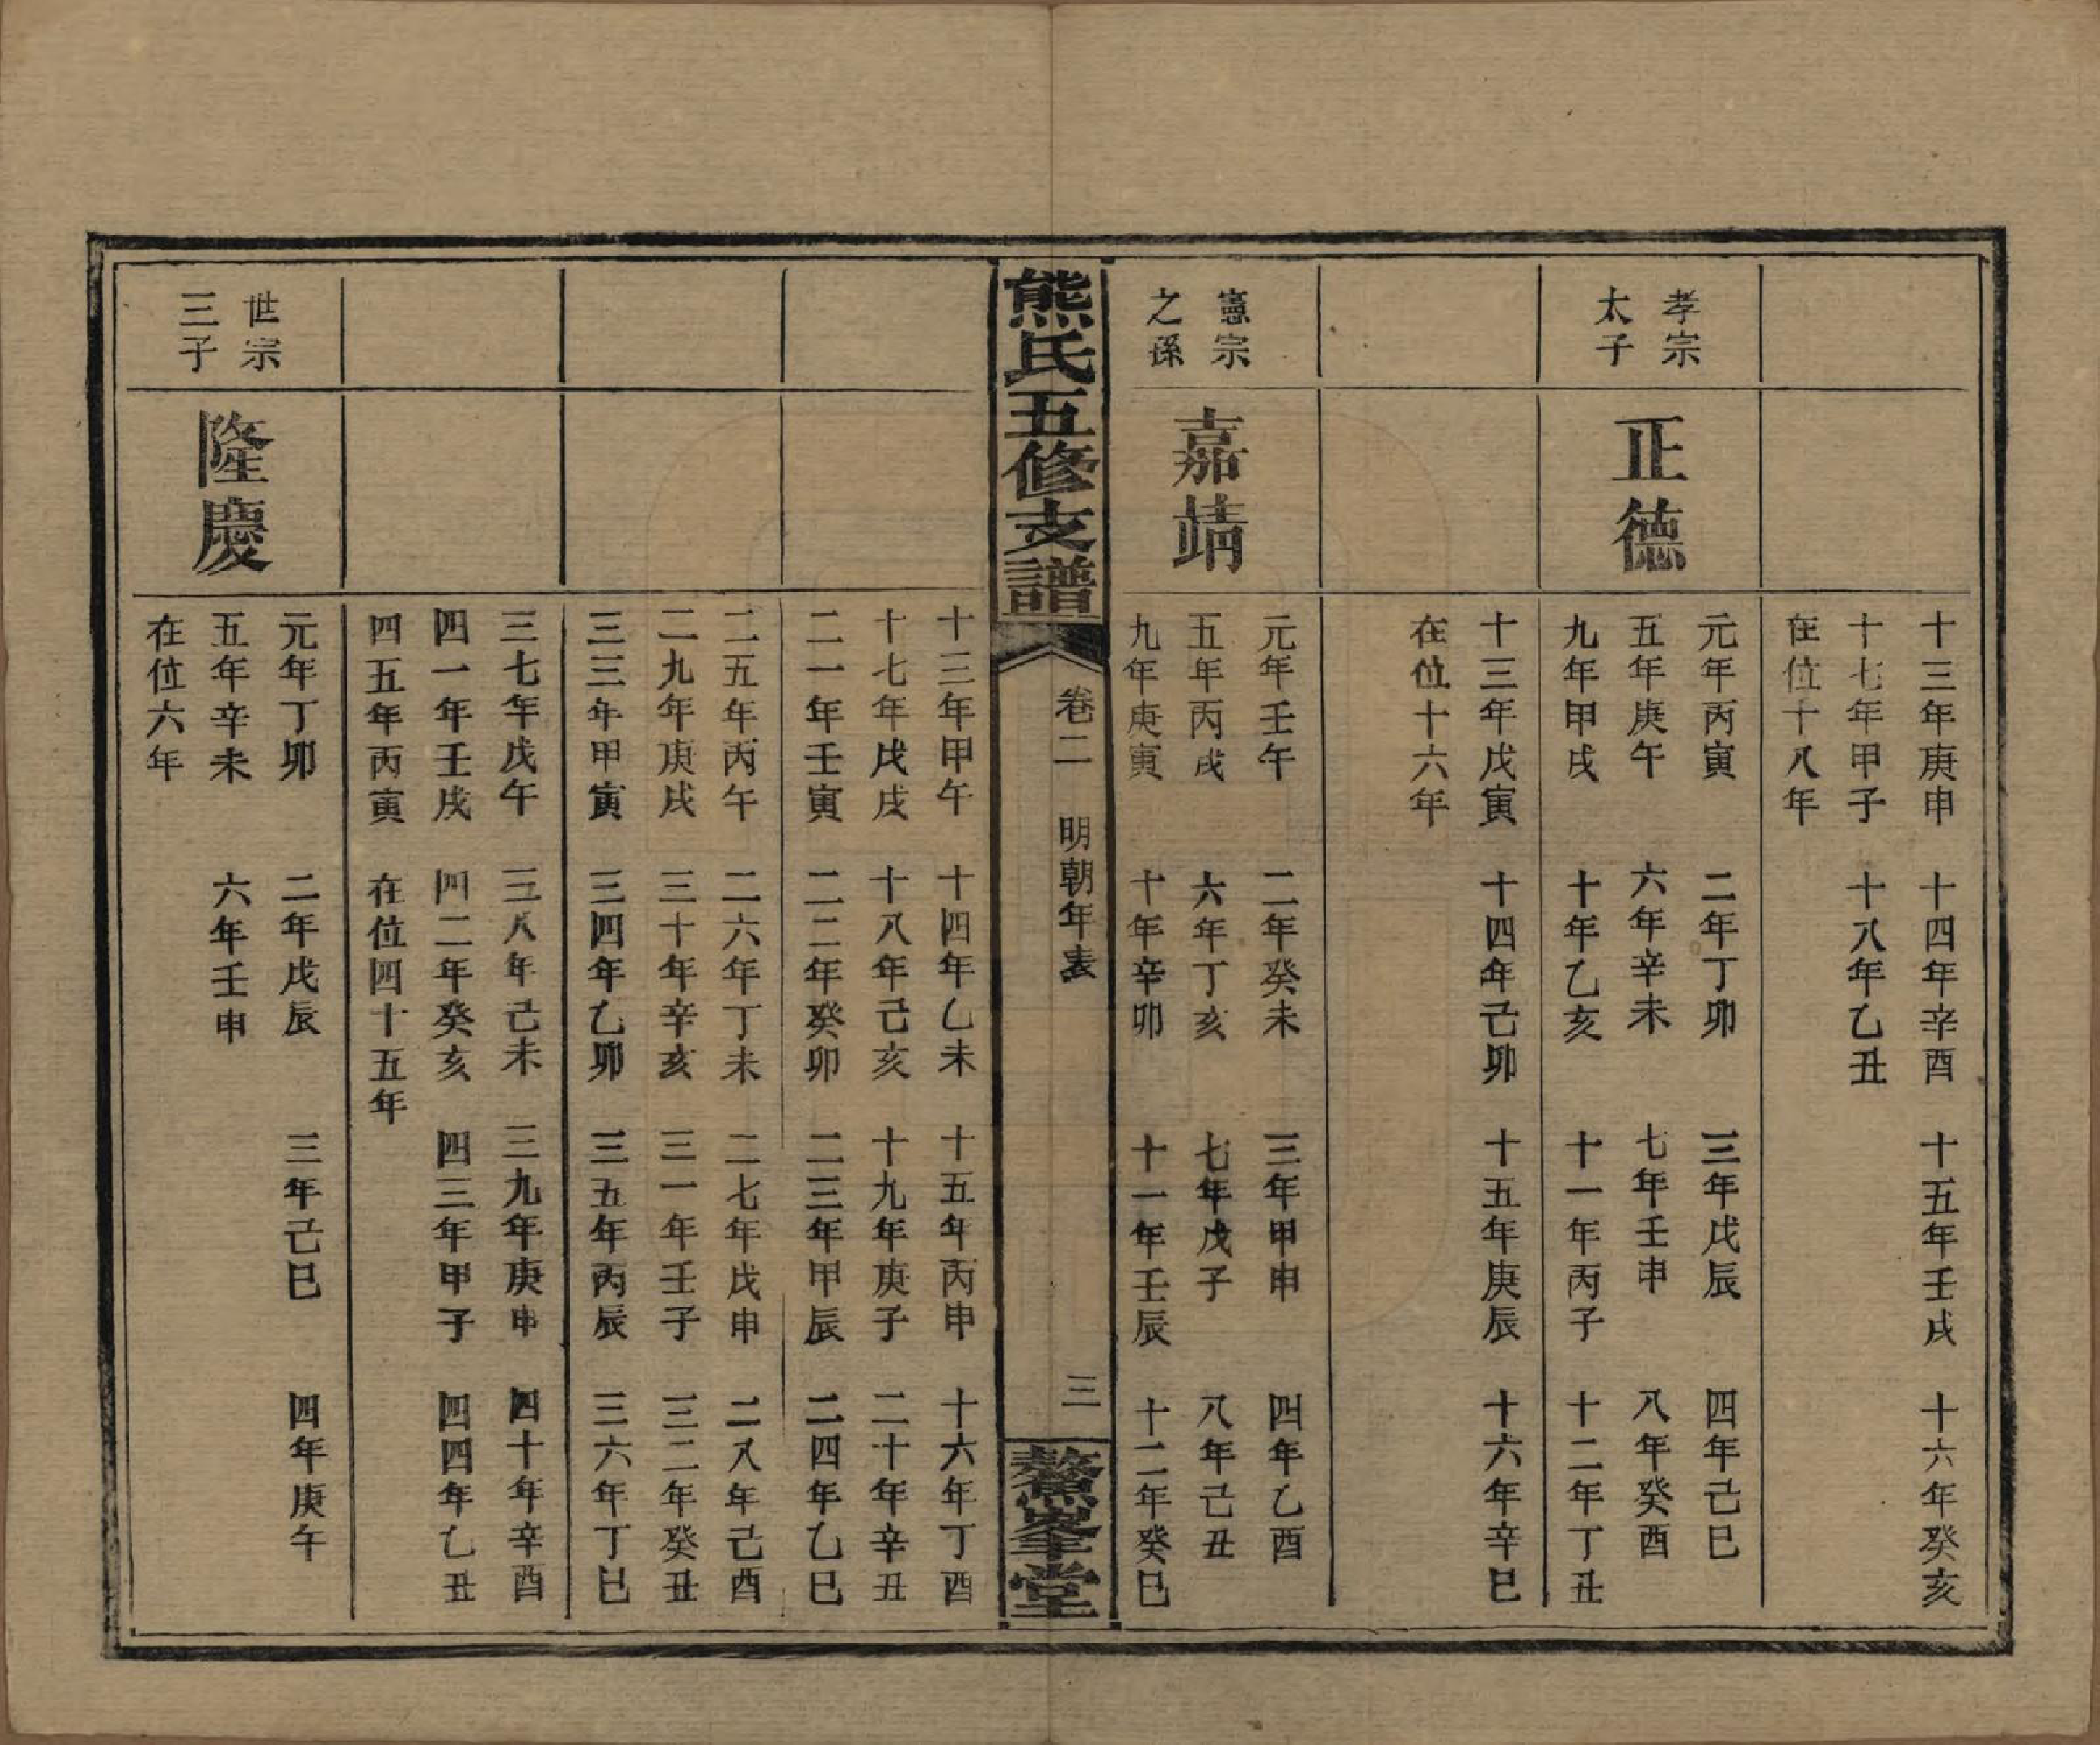 十三年庚申 十四年辛酉 十五年壬戌 十六年癸亥
十七年甲子 十八年乙丑
在位十八年
孝宗
太子
正德
元年丙寅 二年丁卯 三年戊辰 四年己巳
五年庚午 六年辛未 七年壬申 八年癸酉
九年甲戌 十年乙亥 十一年丙子 十二年丁丑
十三年戊寅 十四年己卯 十五年庚辰 十六年辛巳
在位十六年
憲宗
之孫
嘉靖
元年壬午 二年癸未 三年甲申 四年乙酉
五年丙戌 六年丁亥 七年戊子 八年己丑
九年庚寅 十年辛卯 十一年壬辰 十二年癸巳
熊氏五修支譜 卷二 明朝年表 三 鰲峯堂
十三年甲午 十四年乙未 十五年丙申 十六年丁酉
十七年戊戌 十八年己亥 十九年庚子 二十年辛丑
二一年壬寅 二二年癸卯 二三年甲辰 二四年乙巳
二五年丙午 二六年丁未 二七年戊申 二八年己酉
二九年庚戌 三十年辛亥 三一年壬子 三二年癸丑
三三年甲寅 三四年乙卯 三五年丙辰 三六年丁巳
三七年戊午 三八年己未 三九年庚申 四十年辛酉
四一年壬戌 四二年癸亥 四三年甲子 四四年乙丑
四五年丙寅 在位四十五年
世宗
三子
隆慶
元年丁卯 二年戊辰 三年己巳 四年庚午
五年辛未 六年壬申
在位六年